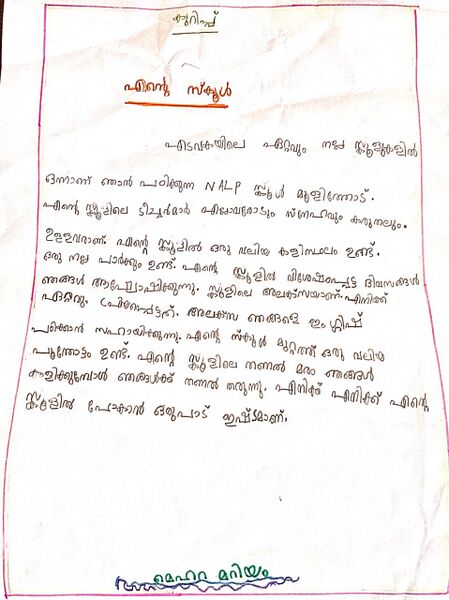 കുറിപ്പ്
എന്റെ സ്കൂൾ
എടവകയിലെ ഏറ്റവും നല്ല സ്കൂളുകളിൽ
ഒന്നാണ് ഞാൻ പഠിക്കുന്ന NALP സ്കൂൾ മൂളിത്തോട്.
എന്റെ സ്കൂളിലെ ടീച്ചർമാർ എല്ലാവരോടും സ്നേഹവും കരുതലും.
ഉള്ളവരാണ്. എന്റെ സ്കൂളിൽ ഒരു വലിയ കളിസ്ഥലം ഉണ്ട്.
ഒരു നല്ല പാർക്കും ഉണ്ട്. എന്റെ സ്കൂളിൽ വിശേഷപ്പെട്ട ദിവസങ്ങൾ
ഞങ്ങൾ ആഘോഷിക്കുന്നു. സ്കൂളിലെ അലക്സയാണ്. എനിക്ക്
ഏറ്റവും പ്രിയപ്പെട്ടത്. അലക്സ ഞങ്ങളെ ഇംഗ്ലീഷ്
പഠിക്കാൻ സഹായിക്കുന്നു. എന്റെ സ്കൂൾ മുറ്റത്ത് ഒരു വലിയ
പൂന്തോട്ടം ഉണ്ട്. എന്റെ സ്കൂളിലെ തണൽ മരം ഞങ്ങൾ
കളിക്കുമ്പോൾ ഞങ്ങൾക്ക് തണൽ തരുന്നു. എനിക്ക് എനിക്ക് എന്റെ
സ്കൂളിൽ പോകാൻ ഒരുപാട് ഇഷ്ടമാണ്.
മെഹറ മറിയം